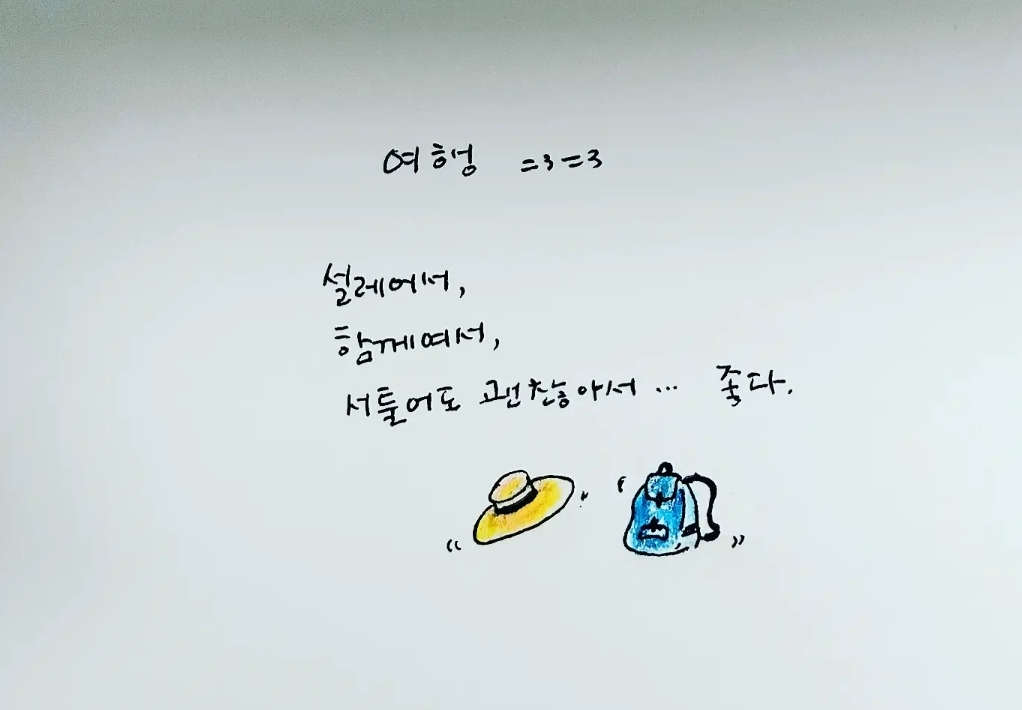 여행 =3=3
설레어서,
함께여서,
서툴어도 괜찮아서... 좋다.